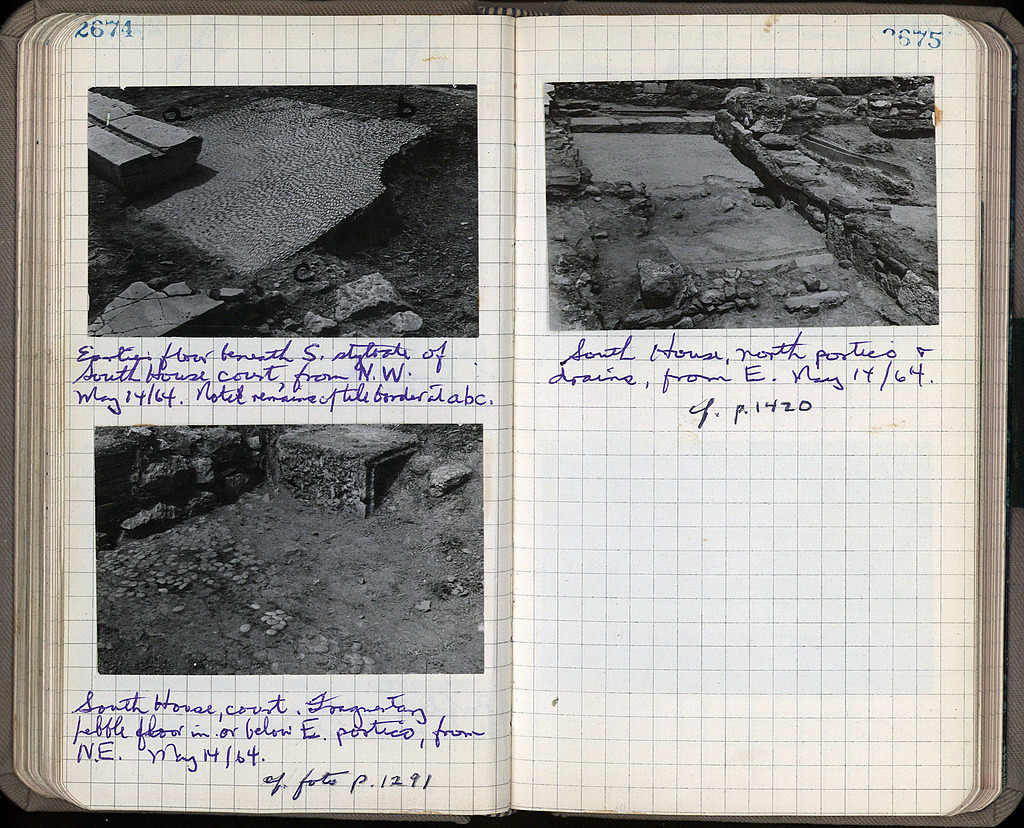 2674
a
b
c
Earlier floor beneath S. stylobate of
South House court, from N.W.
May 14/64. Note remains of tile border at abc.
South House, court. Fragmentary
pebble floor in or below E. portico, from
N.E. May 14/64.
cf. foto p. 1291
2675
South House, north portico &
drains, from E. May 14/64.
cf. p. 1420